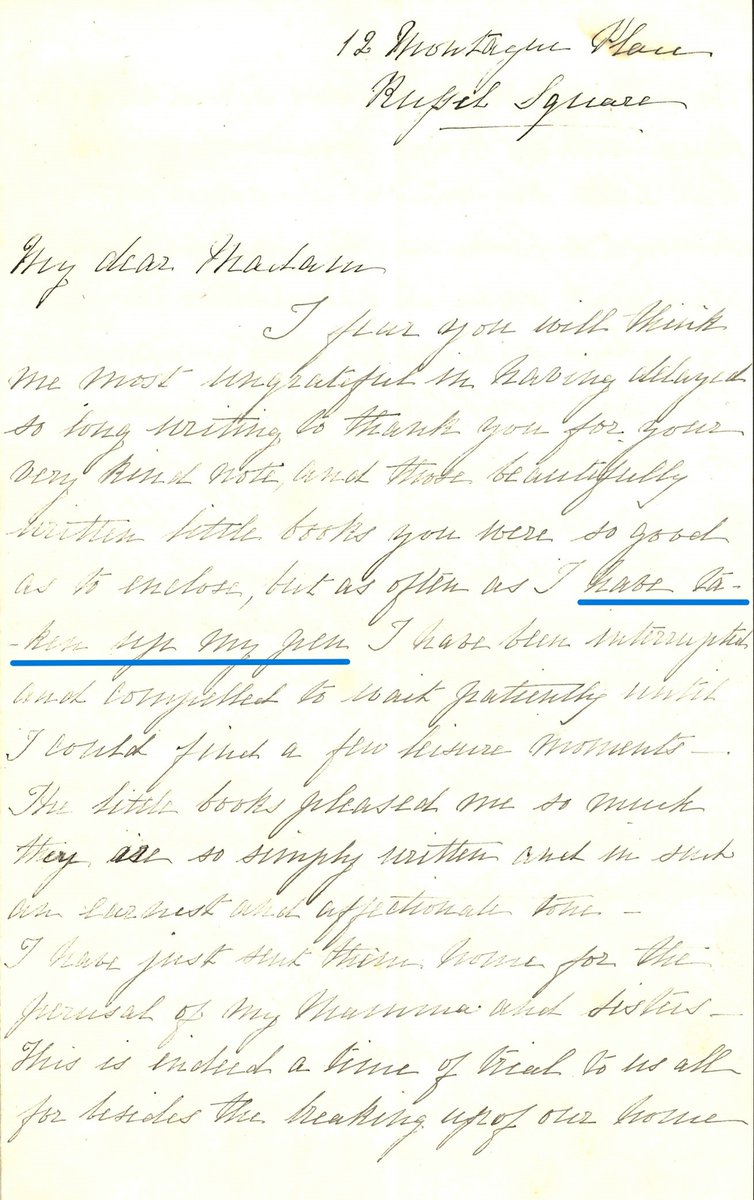 12 Montague Place
Russel Square
My dear Madam
I fear you will think
me most ungrateful in having delayed
so long writing to thank you for your
very kind note, and those beautifully
written little books you were so good
as to enclose, but as often as I have ta-
-ken up my pen I have been interrupted
and compelled to wait patiently until
I could find a few leisure moments —
The little books pleased me so much
they are so simply written and in such
an earnest and affectionate tone —
I have just sent them home for the
perusal of my Mamma and sisters —
This is indeed a time of trial to us all
for besides the breaking up of our home